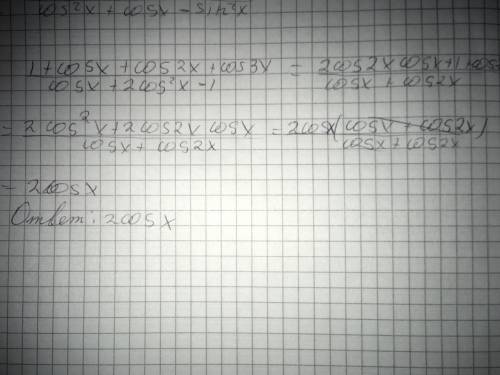 cos²x + cosx - sin²x
1 + cosx + cos2x + cos3x / cosx + 2cos²x - 1 = 2cos2x cosx + 1 + cos / cosx + cos2x
= 2cos²x + 2cos2x cosx / cosx + cos2x = 2cosx(cosx + cos2x) / cosx + cos2x
= 2cosx
Ответ: 2cosx